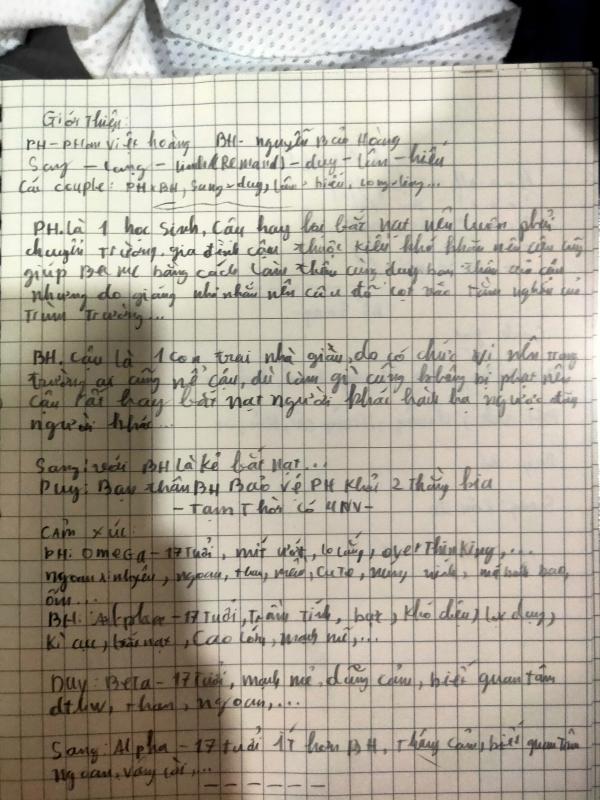 Giới Thiệu:
PH - Phan Việt Hoàng BH - nguyễn Bảo Hoàng
Sang - Long - Linh (Remand) - duy - lâm - hiếu
Các couple: PH x BH, Sang x duy, lâm x hiếu, long x ling...
PH. là 1 học sinh, cậu hay bị bắt nạt nên luôn phải
chuyển trường. gia đình cậu thuộc kiểu khó khăn nên cậu
giúp Ba mẹ bằng cách làm thêm cùng duy bạn thân của cậu
nhưng do nhỏ nhắn nên cậu đã lọt vào tầm ngắm của
Trùm Trường...
BH. cậu là 1 con trai nhà giàu, do có chức vị nên trong
trường ai cũng nể cậu, dù làm gì cũng không bị phạt nên
cậu rất hay bắt nạt người khác hành hạ ngược đãi
người khác...
Sang: với BH là kẻ bắt nạt...
Duy: Bạn thân BH Bảo vệ PH khỏi 2 thằng kia
- Tạm Thời có 4NV -
CẢM XÚC:
PH: OmeGa - 17 Tuổi, mít ướt, lo lắng, overthinking,...
ngoan, mềm, cuTe, nũng nịu,
ốm...
BH: Alphae - 17 Tuổi, Trầm Tính, bạt, khó điều,
Kì cục, bắt nạt, Cao lớn, mạnh mẽ,...
Duy: BeTa - 17 Tuổi, mạnh mẽ, dũng cảm, biết quan tâm
dthw, than, ngoan,...
Sang: Alpha - 17 tuổi ít hơn BH, Thẳng biết quan tâm
ngoan, vâng lời,...
- - - - - -